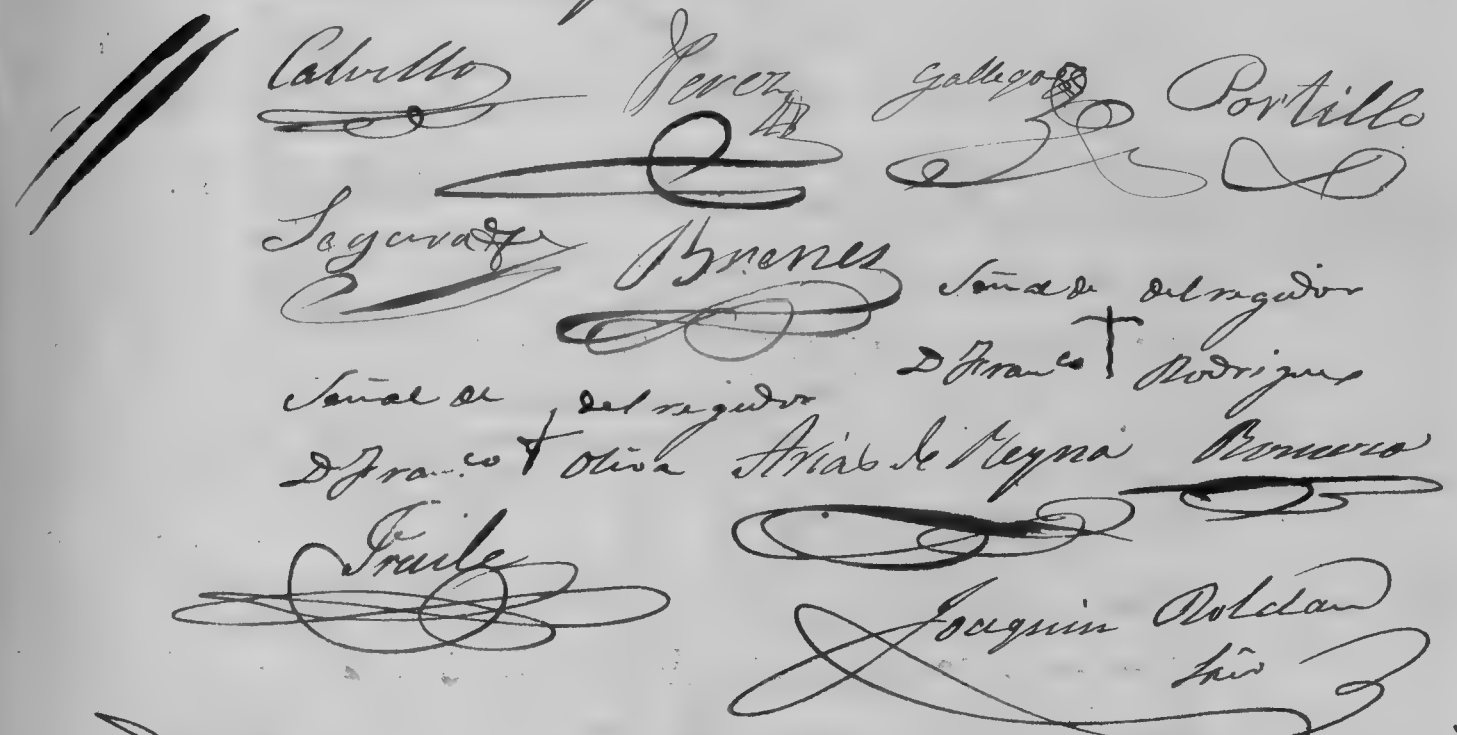 Calvillo Perez Gallegos Portillo
Segura Brenes
Señal de del regidor
D Fran.co Rodriguez
Señal de del regidor
D Fran.co Oliva Arias de Reyna Romero
Fraile
Joaquin Roldan
Srio